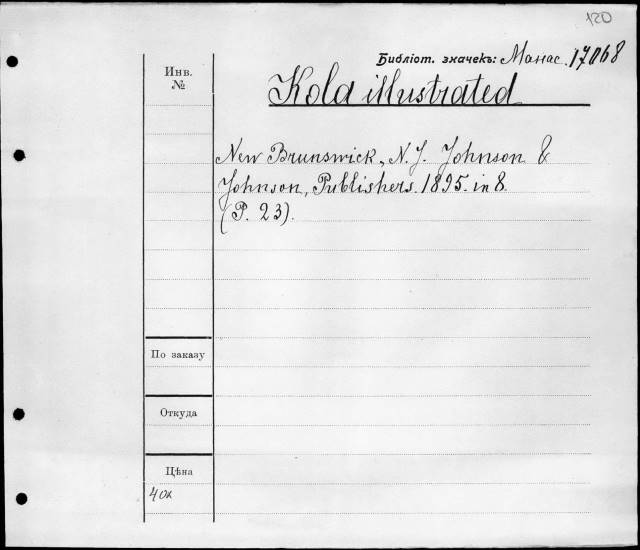 120
Библіот. значекъ: Манас. 17068
Инв. №
Kola illustrated
New Brunswick, N. J. Johnson &
Johnson, Publishers. 1895. in 8.
(P. 23).
По заказу
Откуда
Цѣна
40к